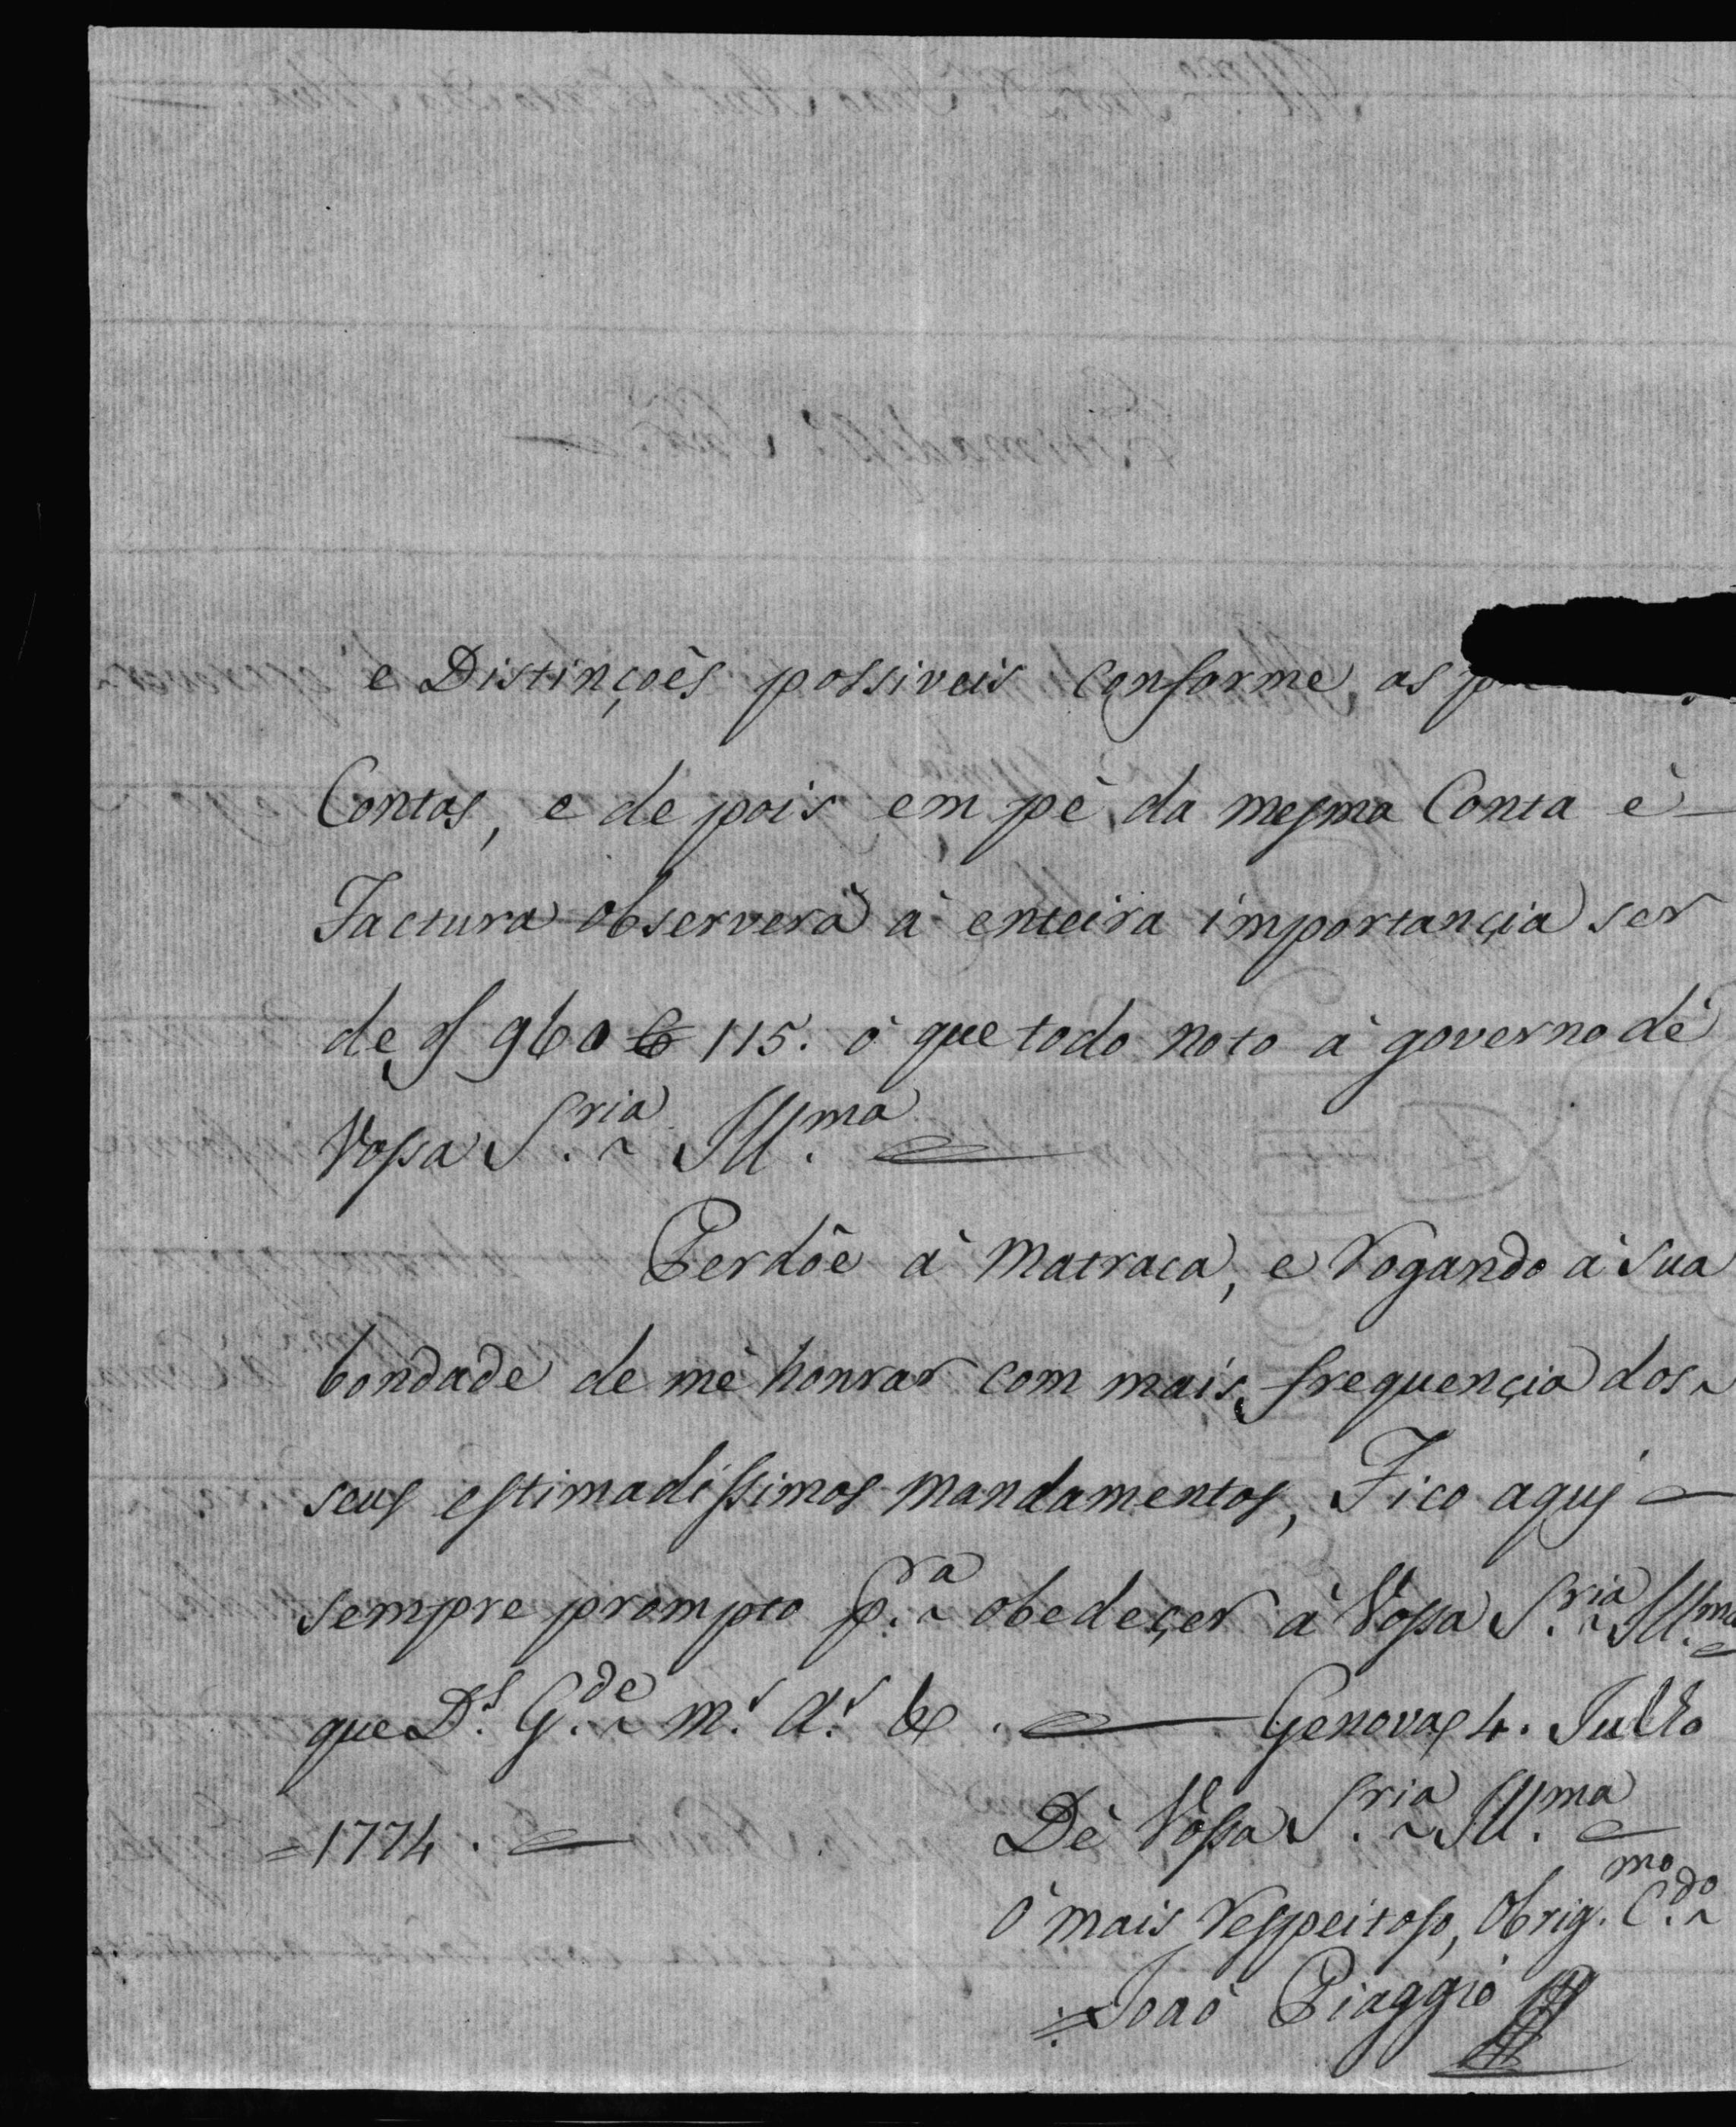 e Distinçoês possiveis conforme as
Contas, e de pois em pè da mesma Conta è
Factura observerà à enteira importançia ser
de 960 115. ò que todo noto à governo dè
Vossa S.ria Ill.ma
Perdôe à Matraca, e Rogando à sua
bondade de mè honrar com mais frequençia dos
seus estimadissimos mandamentos, Fico aquj
sempre prompto p.ra obedeçer à Vossa S.ria Ill.ma
que D.s G.de m.s a.s &
Genova 4. Julho
=1774.
Dè Vossa S.ria Ill.ma
ò mais Respeitoso, Obrig.mo C.do
Joaò Piaggio